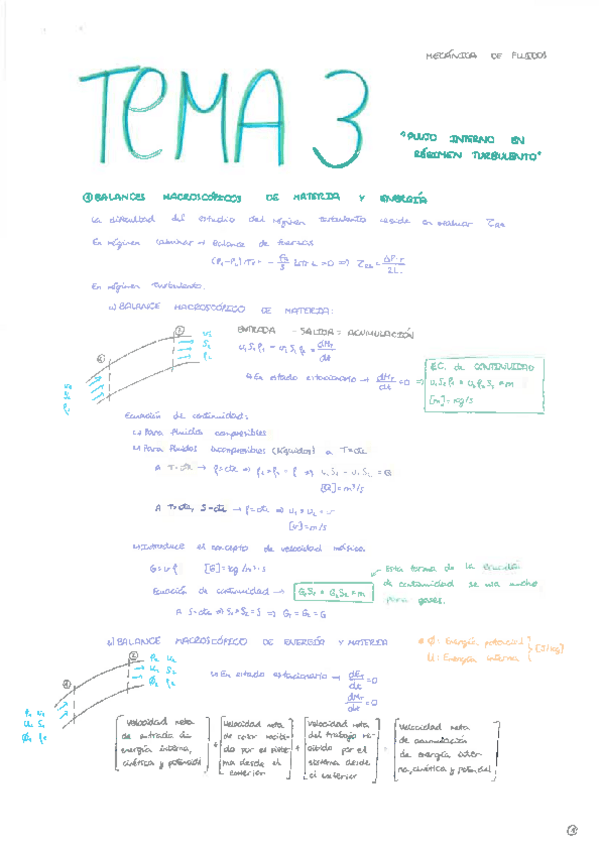 MECÁNICA DE FLUIDOS
TEMA 3
"FLUJO INTERNO EN
RÉGIMEN TURBULENTO"
① BALANCES MACROSCÓPICOS DE MATERIA Y ENERGÍA
La dificultad del estudio del régimen turbulento reside en evaluar
En régimen laminar → Balance de fuerzas
En régimen turbulento.
a) BALANCE MACROSCÓPICO DE MATERIA:
ENTRADA - SALIDA = ACUMULACIÓN
↳ En estado estacionario → dM_T/dt = 0 ⇒
EC. de CONTINUIDAD
[m] = kg/s
Ecuación de continuidad:
↳ Para fluidos compresibles
↳ Para fluidos incompresibles (líquidos) a T=cte
A T=cte → ρ=cte ⇒
[Q]=m³/s
A T=cte, S=cte → ρ=cte ⇒ u₁ = u₂ = v
[v]=m/s
↳ Introduce el concepto de velocidad másica.
G=vρ [G]=kg/m²·s
Ecuación de continuidad → G₁S₁ = G₂S₂ = m
Esta forma de la ecuación
de continuidad se usa mucho
para gases.
A S=cte ⇒ S₁=S₂=S ⇒ G₁=G₂=G
b) BALANCE MACROSCÓPICO DE ENERGÍA Y MATERIA
Ø: Energía potencial
U: Energía interna
[J/kg]
↳ En estado estacionario → dE_T/dt = 0
dM_T/dt = 0
[Velocidad neta de entrada de energía interna, cinética y potencial] + [Velocidad neta de calor recibido por el sistema desde el exterior] + [Velocidad neta del trabajo recibido por el sistema desde el exterior] = [Velocidad neta de acumulación de energía interna, cinética y potencial]